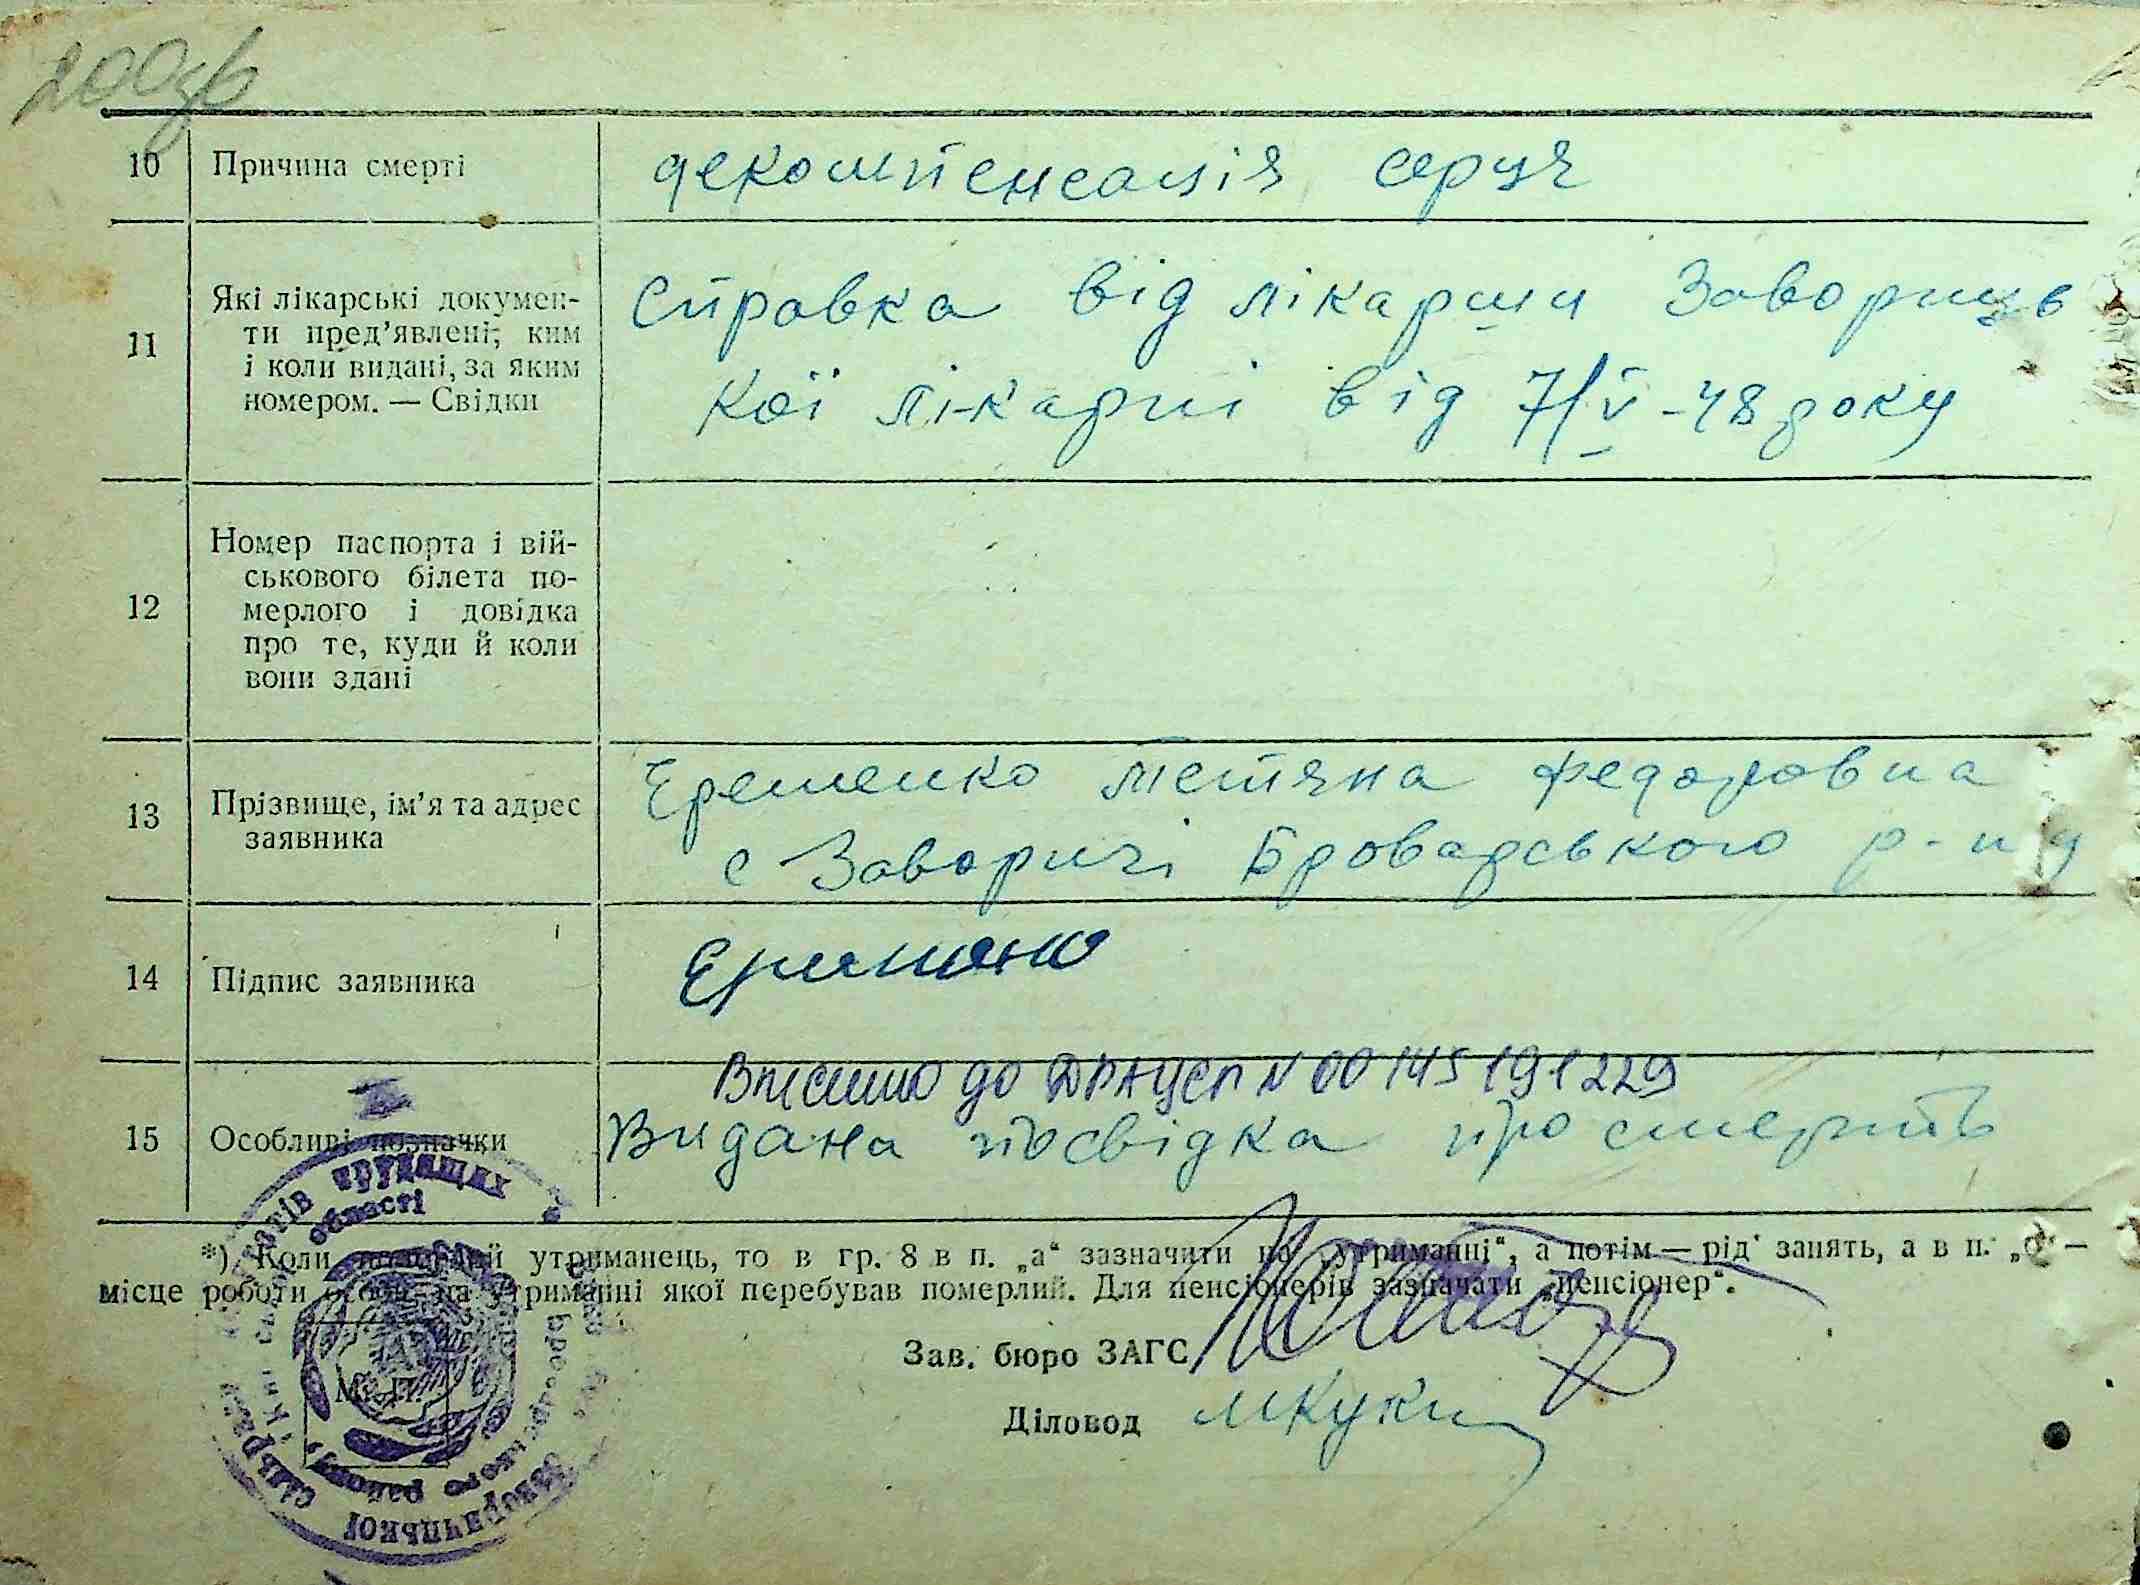 200зв
10 Причина смерті декомпенсація серця
11 Які лікарські докумен-
ти пред'явлені; ким
і коли видані, за яким
номером. — Свідки
Справка від лікарши Заворицьв
кої лікарні від 7/V-48 року
12 Номер паспорта і вій-
ськового білета по-
мерлого і довідка
про те, куди й коли
вони здані
13 Прізвище, ім'я та адрес
заявника
Еременко Тетяна Федоровна
с Заворичі Броварського р-ну
14 Підпис заявника
15 Особливі позначки
Внесено до ДРАЦСГ N 00145191229
Видана посвідка про смерть
*) Коли утриманець, то в гр. 8 в п. „а“ зазначити на „утриманні“, а потім — рід занять, а в п. „б“ —
місце роботи особи, на утриманні якої перебував померлий. Для пенсіонерів зазначати „пенсіонер“.
Зав. бюро ЗАГС
Діловод
М. П.
трудящих
області
району
Заворицької
сільради